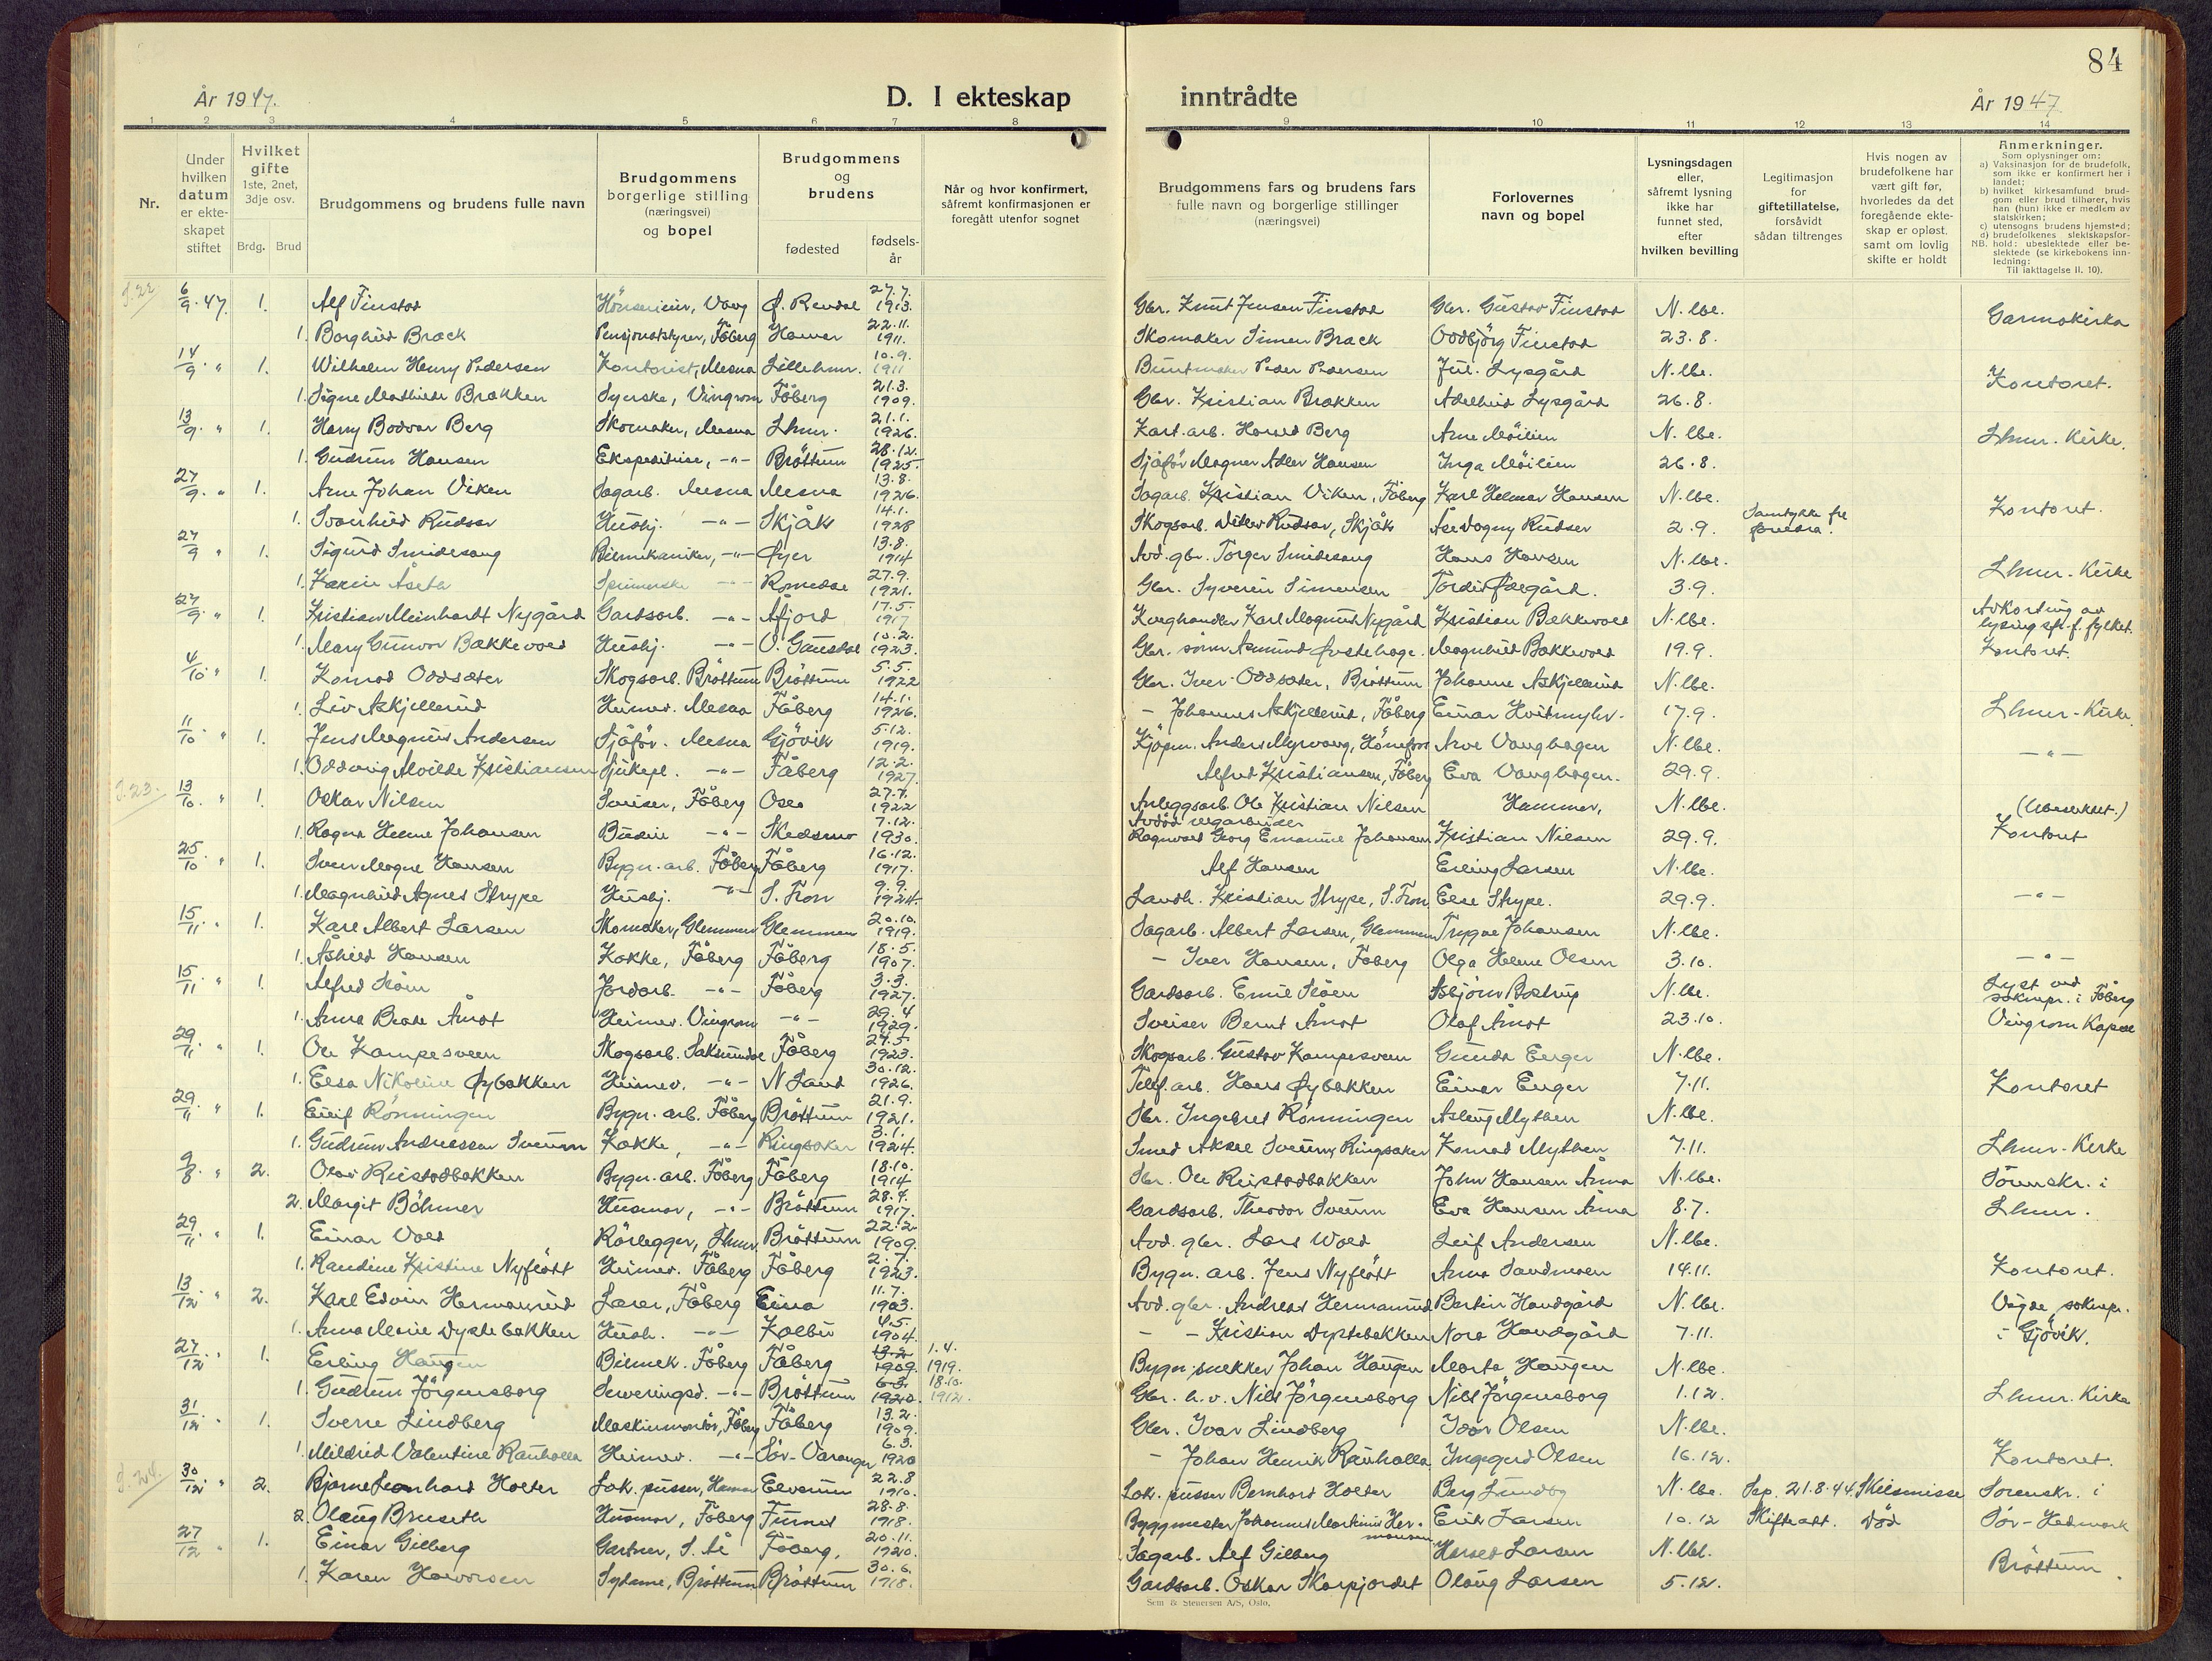 84
År 1947.
D. I ekteskap
inntrådte
År 1947
1 2 3 4 5 6 7 8 9 10 11 12 13 14
Nr.
Under hvilken datum er ekte-skapet stiftet
Hvilket gifte 1ste, 2net, 3dje osv.
Brdg. Brud
Brudgommens og brudens fulle navn
Brudgommens borgerlige stilling (næringsvei) og bopel
Brudgommens og brudens
fødested
fødsels-år
Når og hvor konfirmert, såfremt konfirmasjonen er foregått utenfor sognet
Brudgommens fars og brudens fars fulle navn og borgerlige stillinger (næringsvei)
Forlovernes navn og bopel
Lysningsdagen eller, såfremt lysning ikke har funnet sted, efter hvilken bevilling
Legitimasjon for giftetillatelse, forsåvidt sådan tiltrenges
Hvis nogen av brudefolkene har vært gift før, hvorledes da det foregående ekte-skap er opløst, samt om lovlig skifte er holdt
Anmerkninger.
Som oplysninger om:
a) Vaksinasjon for de brudefolk, som ikke er konfirmert her i landet;
b) hvilket kirkesamfund brud-gom eller brud tilhører, hvis han (hun) ikke er medlem av statskirken;
c) utensogns brudens hjemsted;
d) brudefolkenes slektskapsfor-hold: ubeslektede eller be-slektede (se kirkebokens inn-ledning:
NB. Til iakttagelse II. 10).
S. 22
6/9. 47. 1. Alf Finstad Vang Ø. Rendal 27.7. 1913. Gbr. Knut Jensen Finstad Gbr. Gustav Finstad N. lbe. Garmokirka
1. Borghild Brack Pensjonatstyrer, Fåberg Hamar 22.11. 1911. Skomaker Simen Brack Oddbjörg Finstad 23.8.
14/9 " 1. Wilhelm Henry Pedersen Kontorist, Mesna Lillehmr. 10.9. 1911 Buntmaker Peder Pedersen Jul. Lysgård N. lbe. Kontoret.
1. Signe Mathilde Brækken Syerske, Vingrom Fåberg 21.3. 1909. Gbr. Kristian Brækken Adelheid Lysgård 26.8.
13/9. " 1. Harry Bodvar Berg Skomaker, Mesna Lhmr. 21.1. 1926. Harald Berg Arne Möilien N. lbe. Lhmr. Kirke.
1. Gudrun Hansen Ekspeditrise, -"- Bröttum 28.12. 1925. Sjåför Magner Adler Hansen Inga Möilien 26.8.
27/9. " 1. Arne Johan Viken Sagarb. Mesna Mesna 13.8. 1926. Sagarb. Kristian Viken, Fåberg Karl Helmer Hansen N. lbe. Kontoret.
1. Svanhild Rudsar Hushj. -"- Skjåk 14.1. 1928 Skogsarb. Ditlev Rudsar, Skjåk Åse Dagny Rudsar 2.9. Samtykke fra foreldra.
27/9 " 1. Sigurd Smidesang Bilmekaniker, -"- Øyer 13.8. 1914 Avd. gbr. Torger Smidesang Hans Hansen N. lbe. Lhmr. Kirke
1. Karin Åseth -"- Romedal 27.9. 1921. Gbr. Syverin Simensen Tordis Ødegård. 3.9.
27/9. " 1. Kristian Meinhardt Nygård Gardsarb. -"- Åfjord 17.5. 1917 Kveghandler Karl Magnus Nygård Kristian Bækkevold N. lbe. Avkorting av lysing
1. Mary Gunvor Bækkevold Hushj. -"- V. Gausdal 10.2. 1923. Magnhild Bækkevold 19.9. Kontoret.
4/10. " 1. Konrad Oddsæter Skogsarb. Bröttum Bröttum 5.5. 1922 Gbr. Iver Oddsæter, Bröttum Johanne Askjellerud N. lbe. Lhmr. Kirke.
1. Liv Askjellerud Heimev. Mesna Fåberg 14.1. 1926. - Johannes Askjellerud, Fåberg Einar Hvitmyhr. 17.9.
11/10. " 1. Jens Magnus Andersen Sjåför. Mesna Gjövik 5.12. 1919. Kjöpm. Anders Myrvang, Hönefoss Arve Vanghagen N. lbe. -"-
1. Oddveig Alvilde Kristiansen Sjukepl. -"- Fåberg 12.2. 1927. Alfred Kristiansen, Fåberg Eva Vanghagen. 29.9.
S. 23.
13/10. " 1. Oskar Nilsen Sveiser, Fåberg Oslo 27.7. 1922 Anleggsarb. Ole Kristian Nilsen Hammer, N. lbe. (Ubeslektet.)
1. Ragna Helene Johansen Budeie -"- Skedsmo 7.12. 1930. Avdöd vegarbeider Ragnvald Georg Emanuel Johansen Kristian Nilsen 29.9. Kontoret
25/10 " 1. Svein Magne Hansen Bygn. arb. Fåberg Fåberg 16.12. 1917. Alf Hansen Erling Larsen N. lbe. -"-
1. Magnhild Agnes Strype Hushj. -"- S. Fron 9.9. 1924. Landh. Kristian Strype, S. Fron Else Strype. 29.9.
15/11. " 1. Kåre Albert Larsen Skomaker, Glemmen Glemmen 20.10. 1919. Sagarb. Albert Larsen, Glemmen Trygve Johansen N. lbe. -"-
1. Åshild Hansen Kokke, Fåberg Fåberg 18.5. 1907. - Iver Hansen, Fåberg Olga Helene Olsen 3.10.
15/11 " 1. Alfred Slåen Jordarb. -"- Fåberg 3.3. 1927. Gardsarb. Emil Slåen Asbjörn Rostrup N. lbe. Lyst ved soknepr. i Fåberg
1. Anna Beate Åmot Heimev. Vingrom -"- 29.4 1929. Sveiser Bernt Åmot Olaf Åmot 23.10. Vingrom Kapel
29/11. " 1. Ole Kampesveen Skogsarb. Saksumdal Fåberg 24.5. 1923. Skogsarb. Gustav Kampesveen Gunda Enger N. lbe. Kontoret
1. Elsa Nikoline Øybakken Heimev. -"- N Land 30.12. 1926. Telef. arb. Hans Øybakken Einar Enger 7.11.
29/11. " 1. Eilif Rönningen Bygn. arb. Fåberg Bröttum 21.9. 1921. Gbr. Ingebret Rönningen Aslaug Mythen N. lbe. Lhmr. Kirke
1. Gudrun Andreassen Sveum Kokke, -"- Ringsaker 3.1. 1924. Smed Aksel Sveum, Ringsaker Konrad Mythen 7.11.
9/8. " 2. Olav Reistadbakken Bygn. arb. Fåberg Fåberg 18.10. 1914 Gbr. Ole Reistadbakken John Hansen Åmna N. lbe. Sörenskr. i Lhmr.
2. Margit Böhmer Husmor, -"- Bröttum 28.4. 1917. Gardsarb. Theodor Sveum Eva Hansen Åmna 8.7.
29/11. " 1. Einar Vold Rörlegger, Lhmr. Bröttum 22.2 1909. Avd. gbr. Lars Wold Leif Andersen N. lbe. Kontoret.
1. Randine Kristine Nyflött Heimev. Fåberg Fåberg 2.7. 1923. Bygn. arb. Jens Nyflött Anna Sandmoen 14.11.
13/12 " 2. Karl Edvin Hermanrud Lærer, Fåberg Eina 11.7. 1903. Avd. gbr. Andreas Hermanrud Bertin Haadgård N. lbe. Vigde soknepr. i Gjövik.
1. Anna Marie Dystebakken Hush. -"- Kolbu 4.5. 1904. - - Kristian Dystebakken Nora Haadgård 7.11.
27/12 " 1. Erling Haugen Bilmek. Fåberg Fåberg 13.2 1909. 1.4. 1919. Bygn.snekker Johan Haugen Marta Haugen N. lbe. Lhmr. Kirke
1. Gudrun Jörgensborg Serveringsd. -"- Bröttum 6.3. 1920. 18.10. 1912. Gbr. h.v. Nils Jörgensborg Nils Jörgensborg 1.12.
31/12. " 1. Sverre Lindberg Maskinmontör, Fåberg Fåberg 13.2. 1909. Gbr. Ivar Lindberg Idar Olsen N. lbe. Kontoret.
1. Mildrid Valentine Rauhalla Heimev. -"- Sör-Varanger 6.3. 1920 - Johan Henrik Rauhalla Ingegerd Olsen 16.12.
S. 24.
30/12 " 2. Bjarne Leonhard Holter Lok. pusser, Hamar Elverum 22.8 1910. Lok. pusser Bernhard Holter Berg Lundby N. lbe. Sep. 21.8.44. Skilsmisse Sorenskr. i
2. Olaug Bruseth Husmor, Fåberg Furnes 28.8. 1918. Byggmester Johannes Martinius Hermansen Erik Larsen 10.12 Skifteatt. Död Sör-Hedmark
27/12 " 1. Einar Gilberg Gartner, S. Ål Fåberg. 20.11. 1920. Sagarb. Alf Gilberg Harald Larsen N. lbe. Bröttum.
1. Karen Halvorsen Sydame, Bröttum Bröttum 30.6. 1918. Gardsarb. Oskar Skarpjordet Olaug Larsen 5.12.
Sem & Stenersen A/S, Oslo.